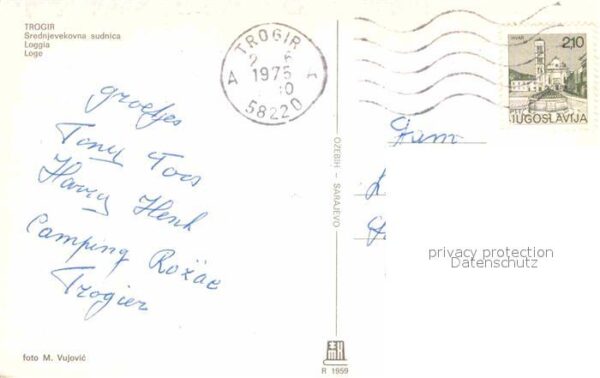 TROGIR
Srednjevekovna sudnica
Loggia
Loge
TROGIR
1975
A A
58220
HVAR
2,10
JUGOSLAVIJA
groetjes
Tony Toos
Harry Henk
Camping Rožac
Trogier
Fam
OZEBIH – SARAJEVO
privacy protection
Datenschutz
foto M. Vujović
R 1959